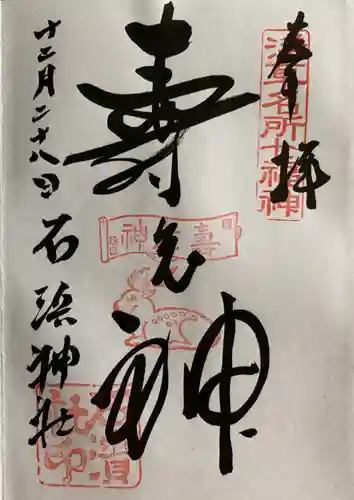 奉拝
浅草名所七福神
寿老神
寿
神
十二月二十八日
石浜神社
石濱
社印